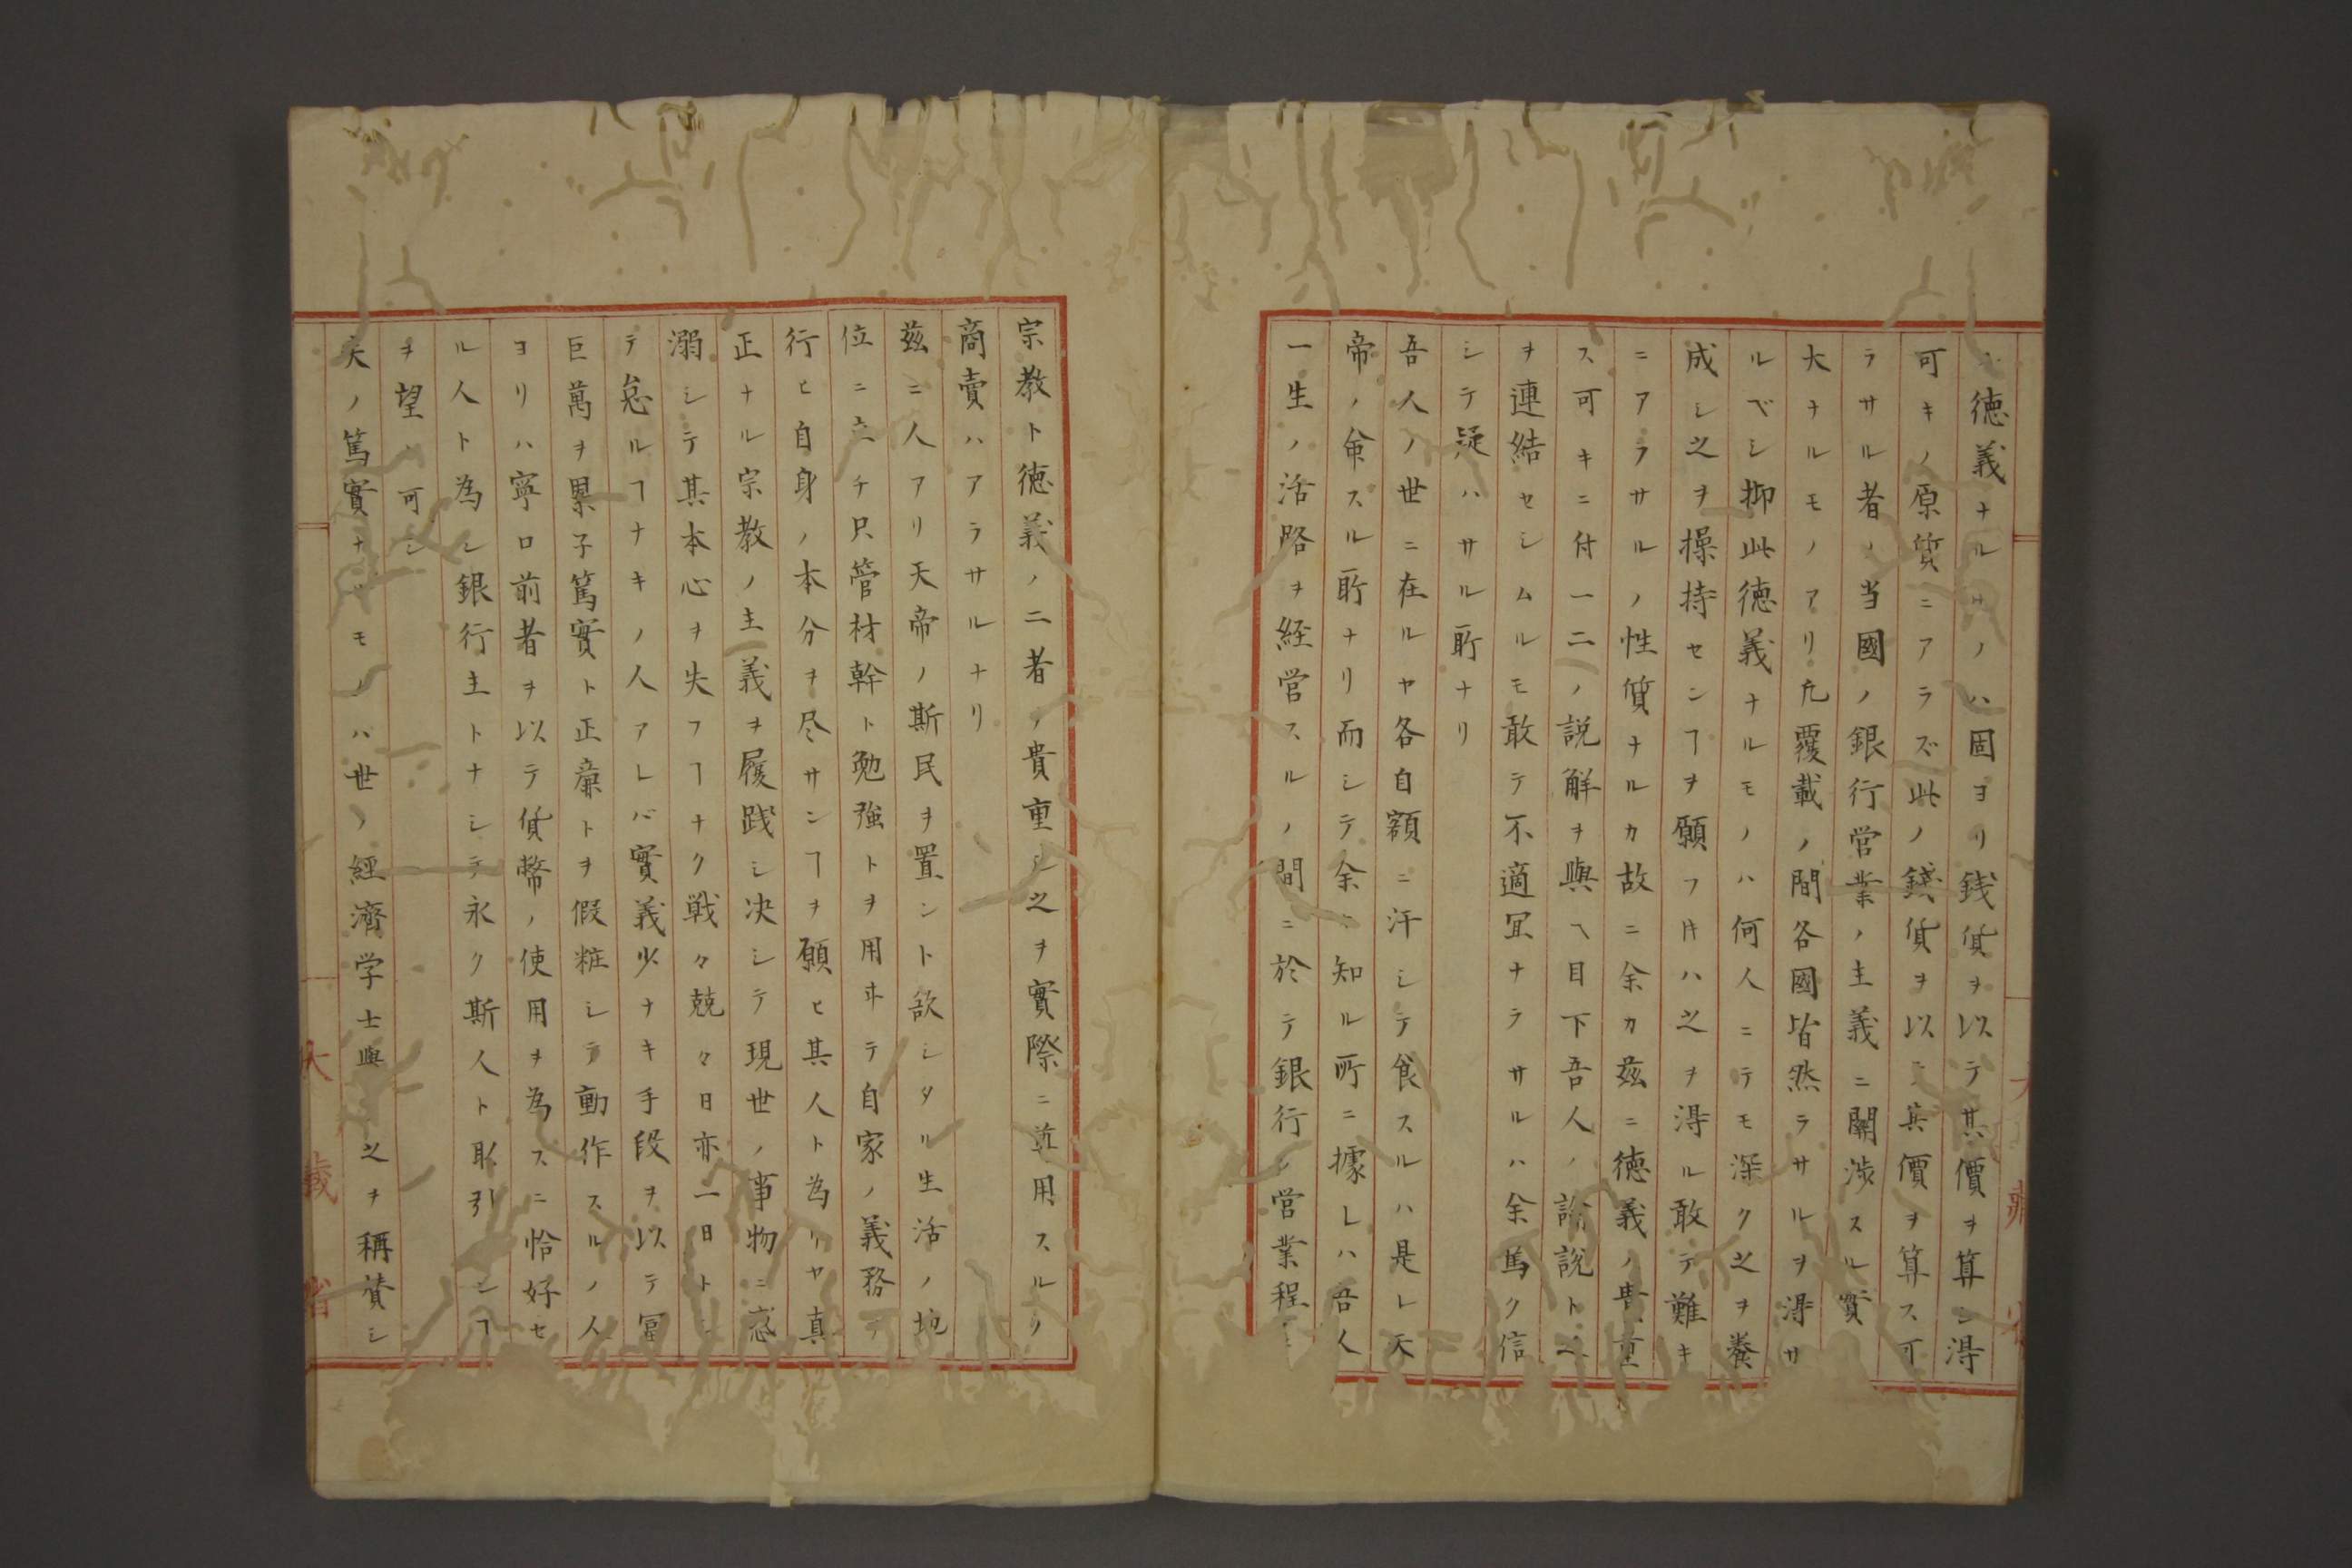 徳義ナルモノハ固ヨリ銭貨ヲ以テ其價ヲ算シ得
可キノ原質ニアラズ此ノ銭貨ヲ以テ其價ヲ算ス可
ラサル者ノ当國ノ銀行営業ノ主義ニ関渉スル實
大ナルモノアリ凢覆載ノ間各國皆然ラサルヲ得サ
ルベシ抑此徳義ナルモノハ何人ニテモ深ク之ヲ養
成シ之ヲ操持センヿヲ願フ㆑ハ之ヲ得ル敢テ難キ
ニアラサルノ性質ナルカ故ニ余カ茲ニ徳義ノ貴重
ス可キニ付一二ノ説解ヲ與ヘ目下吾人ノ論説ト之
ヲ連結セシムルモ敢テ不適冝ナラサルハ余篤ク信
シテ疑ハサル所ナリ
吾人ノ世ニ在ルヤ各自額ニ汗シテ食スルハ是レ天
帝ノ命スル所ナリ而シテ余ノ知ル所ニ據レハ吾人
一生ノ活路ヲ経営スルノ間ニ於テ銀行ノ営業程
宗教ト徳義ノ二者ノ貴重シ之ヲ實際ニ適用スル
商賣ハアラサルナリ
茲ニ人アリ天帝ノ斯民ヲ置ント欲シタル生活ノ地
位ニ立チ只管材幹ト勉強トヲ用ヰテ自家ノ義務ヲ
行ヒ自身ノ本分ヲ尽サンヿヲ願ヒ其人ト為リヤ真
正ナル宗教ノ主義ヲ履践シ决シテ現世ノ事物ニ惑
溺シテ其本心ヲ失フヿナク戦々兢々日亦一日ト
テ怠ルヿナキノ人アレバ實義少ナキ手段ヲ以テ冨
巨萬ヲ累子篤實ト正廉トヲ假粧シテ動作スルノ人
ヨリハ寧ロ前者ヲ以テ貨幣ノ使用ヲ為スニ恰好セ
ル人ト為シ銀行主トナシテ永ク斯人ト取引センヿ
ヲ望ム可シ
夫ノ篤實ナルモノハ世ノ經濟学士輿 之ヲ稱賛シ
大 藏 省